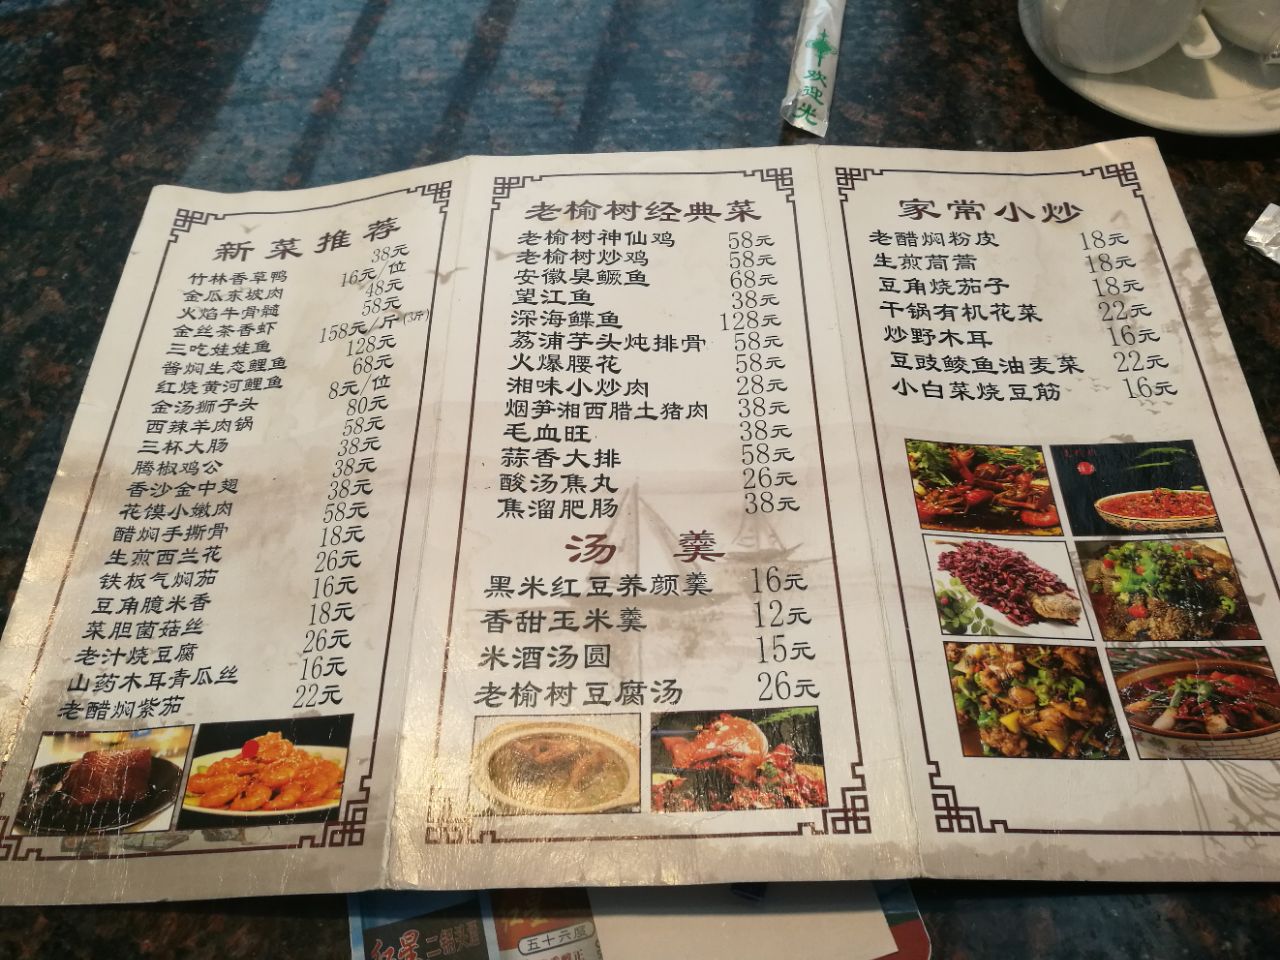 新菜推荐
竹林香草鸭 38元
金瓜东坡肉 16元/位
火焰牛骨髓 48元
金丝茶香虾 58元
三吃娃娃鱼 158元/斤(3斤)
酱焖生态鲤鱼 128元
红烧黄河鲤鱼 68元
金汤狮子头 8元/位
西辣羊肉锅 80元
三杯大肠 58元
腾椒鸡公 38元
香沙金中翅 38元
花馍小嫩肉 38元
醋焖手撕骨 58元
生煎西兰花 18元
铁板气焖茄 26元
豆角臆米香 16元
菜胆菌菇丝 18元
老汁烧豆腐 26元
山药木耳青瓜丝 16元
老醋焖紫茄 22元
老榆树经典菜
老榆树神仙鸡 58元
老榆树炒鸡 58元
安徽臭鳜鱼 68元
望江鱼 38元
深海鲽鱼 128元
荔浦芋头炖排骨 58元
火爆腰花 58元
湘味小炒肉 28元
烟笋湘西腊土猪肉 38元
毛血旺 38元
蒜香大排 58元
酸汤焦丸 26元
焦溜肥肠 38元
汤 羹
黑米红豆养颜羹 16元
香甜玉米羹 12元
米酒汤圆 15元
老榆树豆腐汤 26元
家常小炒
老醋焖粉皮 18元
生煎茼蒿 18元
豆角烧茄子 18元
干锅有机花菜 22元
炒野木耳 16元
豆豉鲮鱼油麦菜 22元
小白菜烧豆筋 16元
欢迎光
红星二锅头
五十六度